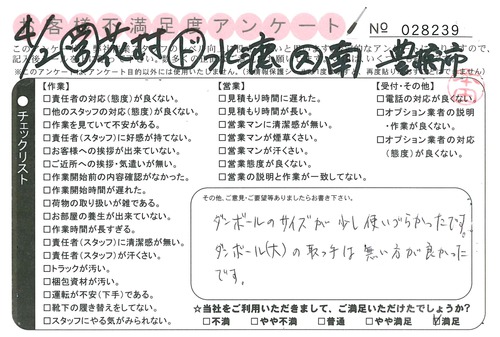 お客様不満足度アンケート
No 028239
チェックリスト
【作業】
□責任者の対応(態度)が良くない。
□他のスタッフの対応(態度)が良くない。
□作業を見ていて不安がある。
□責任者(スタッフ)に好感が持てない。
□お客様への挨拶が出来ていない。
□ご近所への挨拶・気遣いが無い。
□作業開始前の内容確認がなかった。
□作業開始時間が遅れた。
□荷物の取り扱いが雑である。
□お部屋の養生が出来ていない。
□作業時間が長すぎる。
□責任者(スタッフ)に清潔感が無い。
□責任者(スタッフ)が汗くさい。
□トラックが汚い。
□梱包資材が汚い。
□運転が不安(下手)である。
□靴下の履き替えをしてない。
□スタッフにやる気がみられない。
【営業】
□見積もり時間に遅れた。
□見積もり時間が長い。
□営業マンに清潔感が無い。
□営業マンが煙草くさい。
□営業マンが汗くさい。
□営業態度が良くない。
□営業の説明と作業が一致してない。
【受付・その他】
□電話の対応が良くない。
□オプション業者の説明
・作業が良くない。
□オプション業者の対応
(態度)が良くない。
その他、ご意見・ご要望等ありましたらお書き下さい。
ダンボールのサイズが少し使いづらかったです。
ダンボール(大)の取っ手は無い方が良かった
です。
☆当社をご利用いただきまして、ご満足いただけたでしょうか?
□不満 □やや不満 □普通 □やや満足 ☑満足